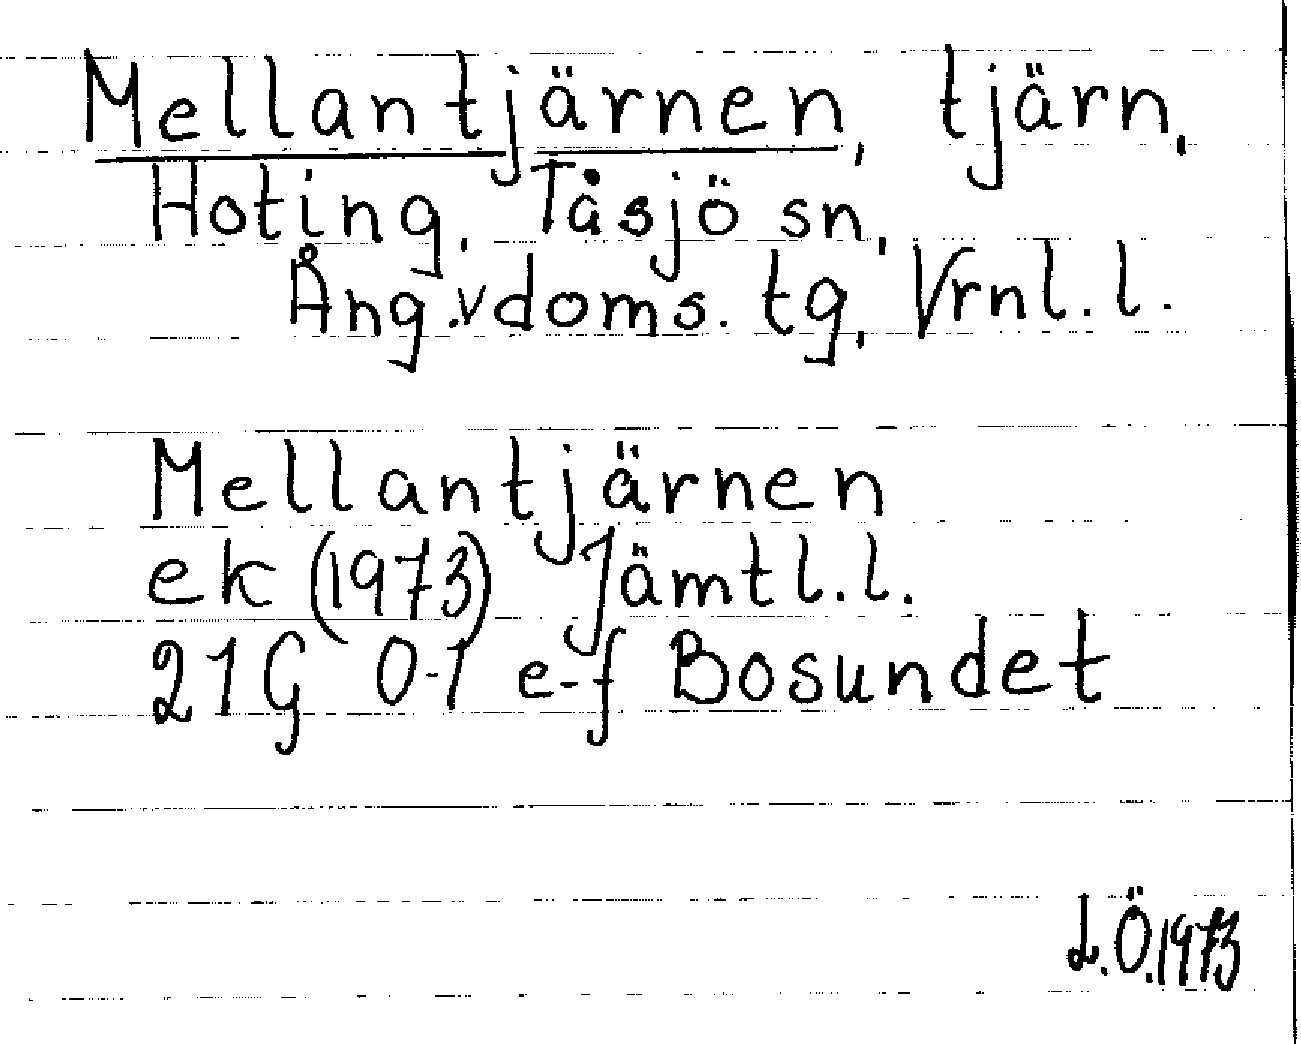 Mellantjärnen, tjärn,
Hoting, Tåsjö sn,
Ång.vdoms. tg, Vrnl. l.
Mellantjärnen
ek (1973) Jämtl. l.
21G 0-1 e-f Bosundet
L.Ö.1973